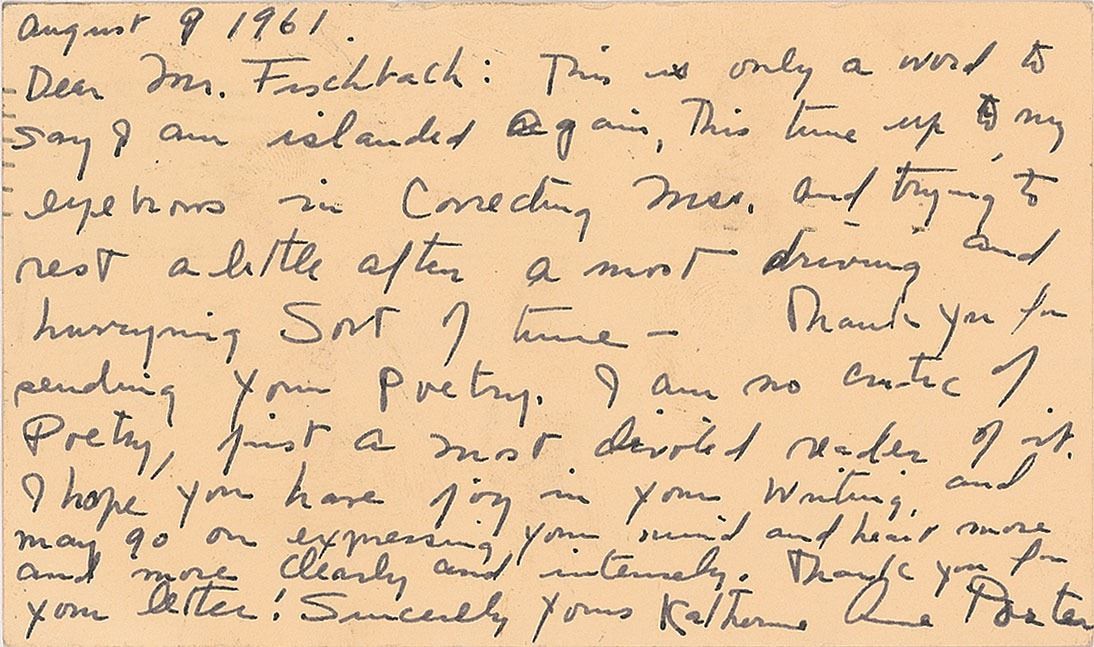 August 9 1961.
Dear Mr. Fischbach: This is only a word to
say I am islanded again, This time up to my
eyebrows in Correcting Mss. and trying to
rest a little after a most driving and
hurrying Sort of time — Thank you for
sending your Poetry. I am no critic of
Poetry, just a most devoted reader of it.
I hope you have joy in your writing, and
may go on expressing your mind and heart more
and more clearly and intensely. Thank you for
your letter! Sincerely yours Katherine Anne Porter